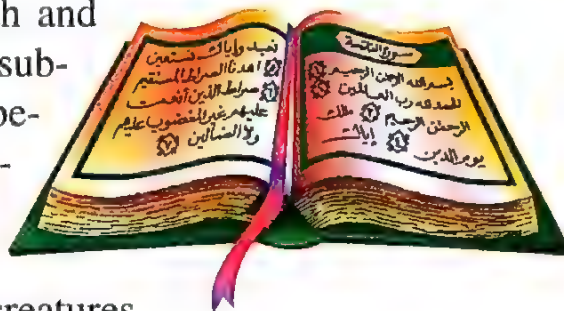 h and
sub-
pe-
-
creatures
سورة الفاتحة
بسم الله الرحمن الرحيم ١
الحمد لله رب العالمين ٢
الرحمن الرحيم ٣ ملك
يوم الدين ٤ إياك
نعبد وإياك نستعين
٥ اهدنا الصراط المستقيم
٦ صراط الذين أنعمت
عليهم غير المغضوب عليهم
ولا الضالين ٧